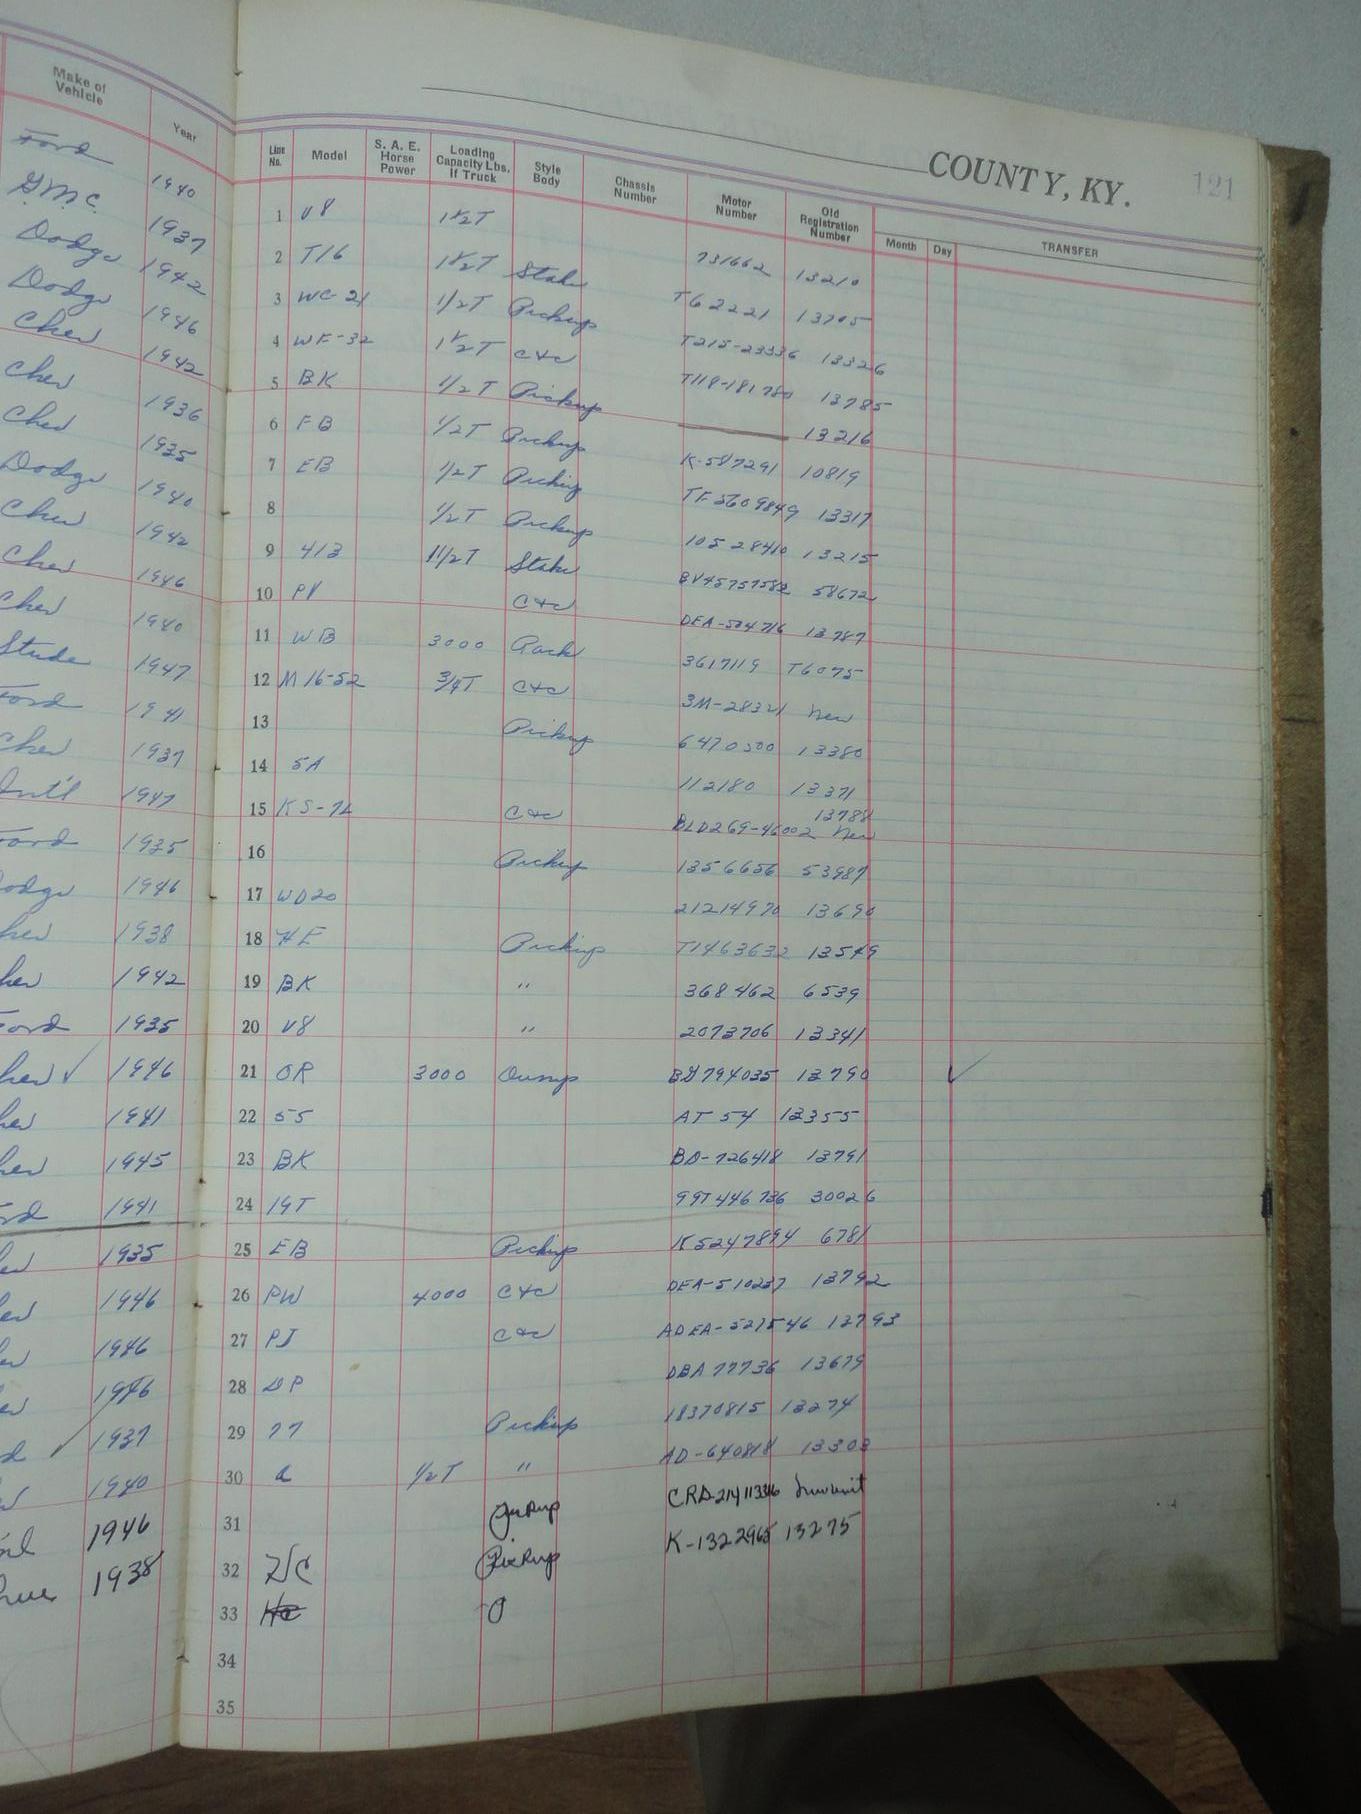 COUNTY, KY. 121
Make of Vehicle Year Line No. Model S. A. E. Horse Power Loading Capacity Lbs. If Truck Style Body Chassis Number Motor Number Old Registration Number Month Day TRANSFER
Ford 1940 1 V8 1½T 731662 13210
G.M.C. 1937 2 T16 1½T Stake T62221 13705
Dodge 1942 3 WC-21 1/2T Pickup T215-23336 13326
Dodge 1946 4 WF-32 1½T C&C T118-181780 13785
Chev 1942 5 BK 1/2T Pickup 13216
Chev 1936 6 FB 1/2T Pickup K-5847291 10819
Chev 1935 7 EB 1/2T Pickup TF-5609849 13317
Dodge 1940 8 1/2T Pickup 10528410 13215
Chev 1942 9 413 1½T Stake 58672
Chev 1946 10 PV C&C DEA-504716 13787
Chev 1940 11 WB 3000 Rack 3617119 T6075
Stude 1947 12 M16-52 3/4T C&C 3M-28321 New
Ford 1941 13 Pickup 6470500 13380
Chev 1937 14 SA 112180 13371
Int'l 1947 15 KS-7L C&C BLD269-46002 13788 New
Ford 1935 16 Pickup 1356656 53987
odge 1946 17 WD20 21214970 13690
hev 1938 18 HE Pickup T1463632 13549
hev 1942 19 BK " 368462 6539
Ford 1935 20 V8 " 2073706 13341
hev ✓ 1946 21 OR 3000 Dump 13790 ✓
hev 1941 22 55 AT 54 13355
hev 1945 23 BK BD-726418 13791
rd 1941 24 19T 99T446736 30026
ev 1935 25 EB Pickup K5247894 6781
ev 1946 26 PW 4000 C&C DEA-510237 13792
ev 1946 27 PJ C&C ADEA-527546 13793
ev 1946 28 DP DBA 77736 13679
d 1937 29 77 Pickup 18370815 13274
1940 30 a 1/2T " AD-640818 13303
1946 31 Pickup
1938 32 HC Pickup K-1322965 13275
33
34
35